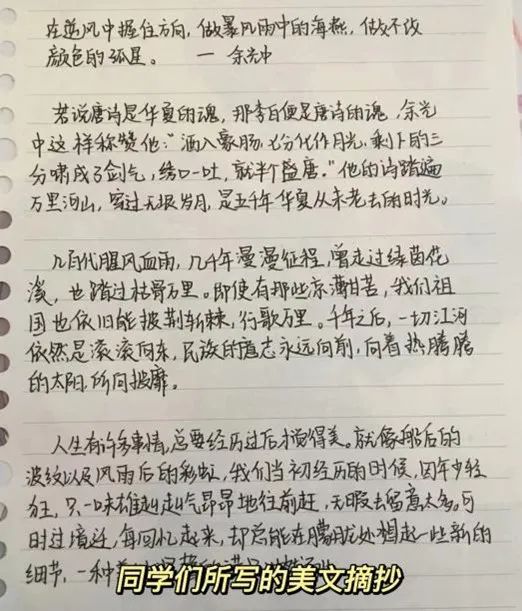 在逆风中握住方向，做暴风雨中的海燕，做不改
颜色的孤星。 — 余光中
若说唐诗是华夏的魂，那李白便是唐诗的魂，余光
中这样称赞他："酒入豪肠，七分化作月光，剩下的三
分啸成了剑气，绣口一吐，就半个盛唐。"他的诗踏遍
万里河山，穿过无垠岁月，是五千年华夏从未老去的时光。
几百代腥风血雨，几千年漫漫征程，曾走过绿茵花
溪，也踏过枯骨万里。即使有那些凉薄甘苦，我们祖
国也依旧能披荆斩棘，行歌万里。千年之后，一切江河
依然是滚滚向东，民族的意志永远向前，向着热腾腾
的太阳，所向披靡。
人生有许多事情，总要经历过后才觉得美。就像船后的
波纹以及风雨后的彩虹，我们当初经历的时候，因年少轻
狂，只一味雄赳赳气昂昂地往前赶，无暇去留意太多。可
时过境迁，每回忆起来，却总能在朦胧处想起一些新的
细节，一种
同学们所写的美文摘抄